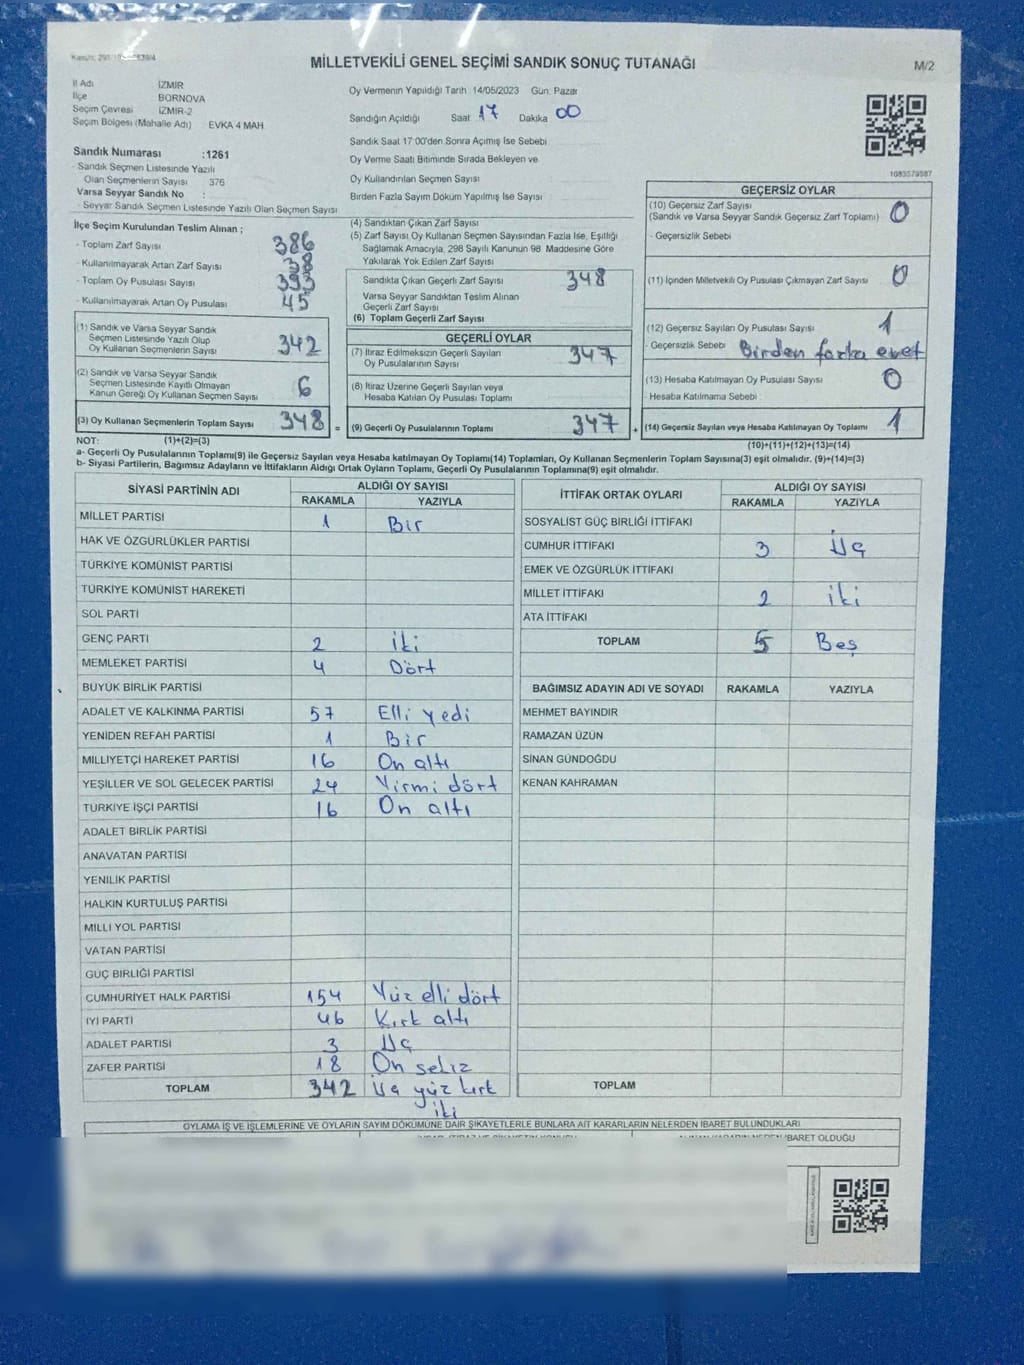 MİLLETVEKİLİ GENEL SEÇİMİ SANDIK SONUÇ TUTANAĞI
M/2
İl Adı İZMİR
İlçe BORNOVA
Seçim Çevresi İZMİR-2
Seçim Bölgesi (Mahalle Adı) : EVKA 4 MAH
Sandık Numarası :1261
- Sandık Seçmen Listesinde Yazılı
Olan Seçmenlerin Sayısı : 376
Varsa Seyyar Sandık No :
- Seyyar Sandık Seçmen Listesinde Yazılı Olan Seçmen Sayısı
Oy Vermenin Yapıldığı Tarih : 14/05/2023 Gün: Pazar
Sandığın Açıldığı Saat 17 Dakika 00
Sandık Saat 17:00'den Sonra Açılmış İse Sebebi
Oy Verme Saati Bitiminde Sırada Bekleyen ve
Oy Kullandırılan Seçmen Sayısı
Birden Fazla Sayım Döküm Yapılmış İse Sayısı
1083579587
İlçe Seçim Kurulundan Teslim Alınan ;
- Toplam Zarf Sayısı 386
- Kullanılmayarak Artan Zarf Sayısı 38
- Toplam Oy Pusulası Sayısı 393
- Kullanılmayarak Artan Oy Pusulası 45
(1) Sandık ve Varsa Seyyar Sandık
Seçmen Listesinde Yazılı Olup
Oy Kullanan Seçmenlerin Sayısı 342
(2) Sandık ve Varsa Seyyar Sandık
Seçmen Listesinde Kayıtlı Olmayan
Kanun Gereği Oy Kullanan Seçmen Sayısı 6
(3) Oy Kullanan Seçmenlerin Toplam Sayısı 348 =
(4) Sandıktan Çıkan Zarf Sayısı
(5) Zarf Sayısı Oy Kullanan Seçmen Sayısından Fazla İse, Eşitliği
Sağlamak Amacıyla, 298 Sayılı Kanunun 98. Maddesine Göre
Yakılarak Yok Edilen Zarf Sayısı
Sandıkta Çıkan Geçerli Zarf Sayısı 348
Varsa Seyyar Sandıktan Teslim Alınan
Geçerli Zarf Sayısı
(6) Toplam Geçerli Zarf Sayısı
GEÇERLİ OYLAR
(7) İtiraz Edilmeksizin Geçerli Sayılan
Oy Pusulalarının Sayısı 347
(8) İtiraz Üzerine Geçerli Sayılan veya
Hesaba Katılan Oy Pusulası Toplamı
(9) Geçerli Oy Pusulalarının Toplamı 347 +
GEÇERSİZ OYLAR
(10) Geçersiz Zarf Sayısı
(Sandık ve Varsa Seyyar Sandık Geçersiz Zarf Toplamı) 0
- Geçersizlik Sebebi
(11) İçinden Milletvekili Oy Pusulası Çıkmayan Zarf Sayısı 0
(12) Geçersiz Sayılan Oy Pusulası Sayısı 1
- Geçersizlik Sebebi Birden fazla evet
(13) Hesaba Katılmayan Oy Pusulası Sayısı 0
- Hesaba Katılmama Sebebi
(14) Geçersiz Sayılan veya Hesaba Katılmayan Oy Toplamı 1
NOT: (1)+(2)=(3) (10)+(11)+(12)+(13)=(14)
a- Geçerli Oy Pusulasının Toplamı(9) ile Geçersiz Sayılan veya Hesaba Katılmayan Oy Toplamı(14) Toplamları, Oy Kullanan Seçmenlerin Toplam Sayısına(3) eşit olmalıdır. (9)+(14)=(3)
b- Siyasi Partilerin, Bağımsız Adayların ve İttifakların Aldığı Ortak Oyların Toplamı, Geçerli Oy Pusulalarının Toplamına(9) eşit olmalıdır.
SİYASİ PARTİNİN ADI ALDIĞI OY SAYISI
RAKAMLA YAZIYLA
MİLLET PARTİSİ 1 Bir
HAK VE ÖZGÜRLÜKLER PARTİSİ
TÜRKİYE KOMÜNİST PARTİSİ
TÜRKİYE KOMÜNİST HAREKETİ
SOL PARTİ
GENÇ PARTİ 2 İki
MEMLEKET PARTİSİ 4 Dört
BÜYÜK BİRLİK PARTİSİ
ADALET VE KALKINMA PARTİSİ 57 Elli yedi
YENİDEN REFAH PARTİSİ 1 Bir
MİLLİYETÇİ HAREKET PARTİSİ 16 On altı
YEŞİLLER VE SOL GELECEK PARTİSİ 24 Yirmi dört
TÜRKİYE İŞÇİ PARTİSİ 16 On altı
ADALET BİRLİK PARTİSİ
ANAVATAN PARTİSİ
YENİLİK PARTİSİ
HALKIN KURTULUŞ PARTİSİ
MİLLİ YOL PARTİSİ
VATAN PARTİSİ
GÜÇ BİRLİĞİ PARTİSİ
CUMHURİYET HALK PARTİSİ 154 Yüz elli dört
İYİ PARTİ 46 Kırk altı
ADALET PARTİSİ 3 Üç
ZAFER PARTİSİ 18 On sekiz
TOPLAM 342 Üç yüz kırk
iki
İTTİFAK ORTAK OYLARI ALDIĞI OY SAYISI
RAKAMLA YAZIYLA
SOSYALİST GÜÇ BİRLİĞİ İTTİFAKI
CUMHUR İTTİFAKI 3 Üç
EMEK VE ÖZGÜRLÜK İTTİFAKI
MİLLET İTTİFAKI 2 iki
ATA İTTİFAKI
TOPLAM 5 Beş
BAĞIMSIZ ADAYIN ADI VE SOYADI RAKAMLA YAZIYLA
MEHMET BAYINDIR
RAMAZAN ÜZÜN
SİNAN GÜNDOĞDU
KENAN KAHRAMAN
TOPLAM
OYLAMA İŞ VE İŞLEMLERİNE VE OYLARIN SAYIM DÖKÜMÜNE DAİR ŞİKAYETLERLE BUNLARA AİT KARARLARIN NELERDEN İBARET BULUNDUKLARI
İBARET OLDUĞU